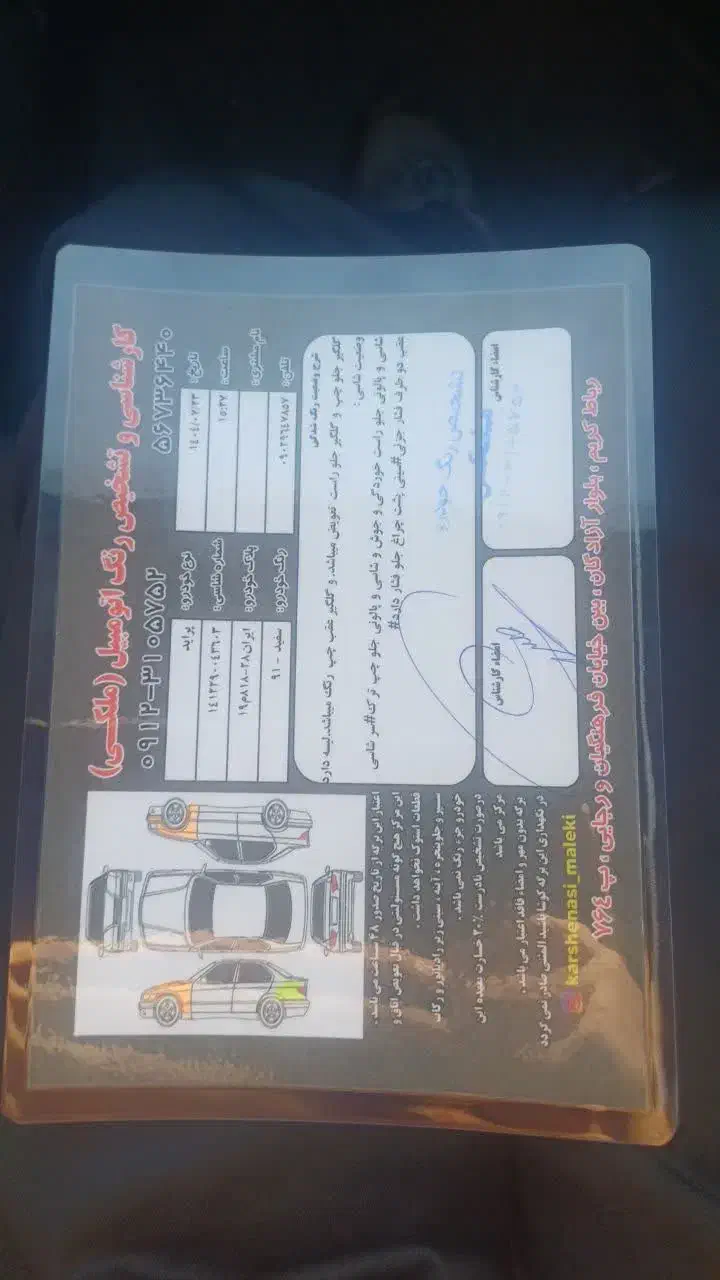 کارشناسی و تشخیص رنگ اتومبیل (ملکی)
۰۹۱۲-۳۱۰۵۷۵۲ ۵۶۷۳۶۴۴۰
نوع خودرو: پراید
شماره شاسی: ۱٤۱۲۲۹۰۰٤۳٦۰۳
پلاک خودرو: ایران۳۸-۸۱۸م۱۹
رنگ خودرو: سفید - ۹۱
تاریخ: ۱٤۰٤/۰۷/۲۳
ساعت: ۱۵:۳۷
نام مشتری:
تلفن: ۰۹۰۲۹٦٤۷۸۵۷
شرح وضعیت رنگ شدگی
گلگیر جلو چپ و گلگیر جلو راست تعویض میباشد. و گلگیر عقب چپ رنگ میباشد.لیسه دارد
وضعیت شاسی:
شاسی و پالونی جلو راست خوردگی و جوش و شاسی و پالونی جلو چپ ترک#سر شاسی
عقب دو طرف فشار جزئی#سینی پشت چراغ جلو فشار دارد#
امضاء کارشناس
امضاء کارشناس
تشخیص رنگ خودرو
اعتبار این برگه از تاریخ صدور ۴۸ ساعت می باشد.
این مرکز هیچ گونه مسئولیتی در قبال تعویض اتاق و
قطعات استوک نخواهد داشت.
سپر و جلوپنجره، آینه، سینی زیر رادیاتور و رکاب
خودرو جزء رنگ نمی باشد.
درصورت تشخیص نادرست ۳۰٪ خسارت بعهده این
مرکز می باشد
برگه بدون مهر و امضاء فاقد اعتبار می باشد.
در نگهداری این برگه کوشا باشید المثنی صادر نمی گردد
karshenasi_maleki
رباط کریم، بلوار آزادگان، بین خیابان فرهنگیان و رجایی، پ ۷۶۴